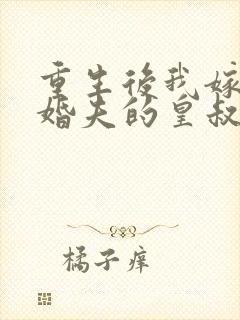 重生後我嫁
婚夫的皇叔
橘子痒